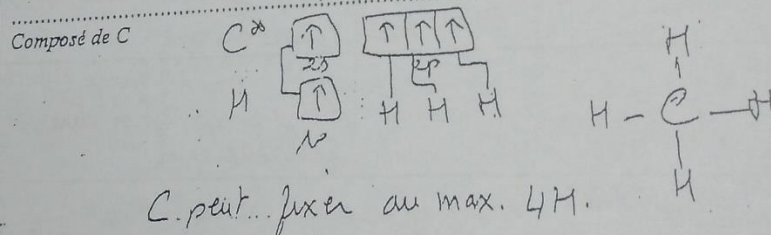 Composé de C C* ↑ ↑ ↑ ↑ H
2s 2p
H ↑ H H H H - C - H
1s
H
C peut fixer au max. 4H.